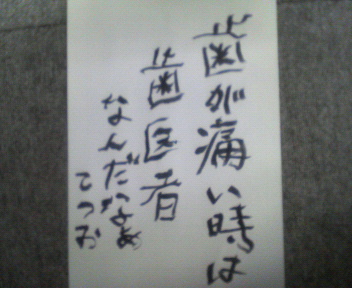 歯が痛い時は
歯医者
なんだなあ
てつお